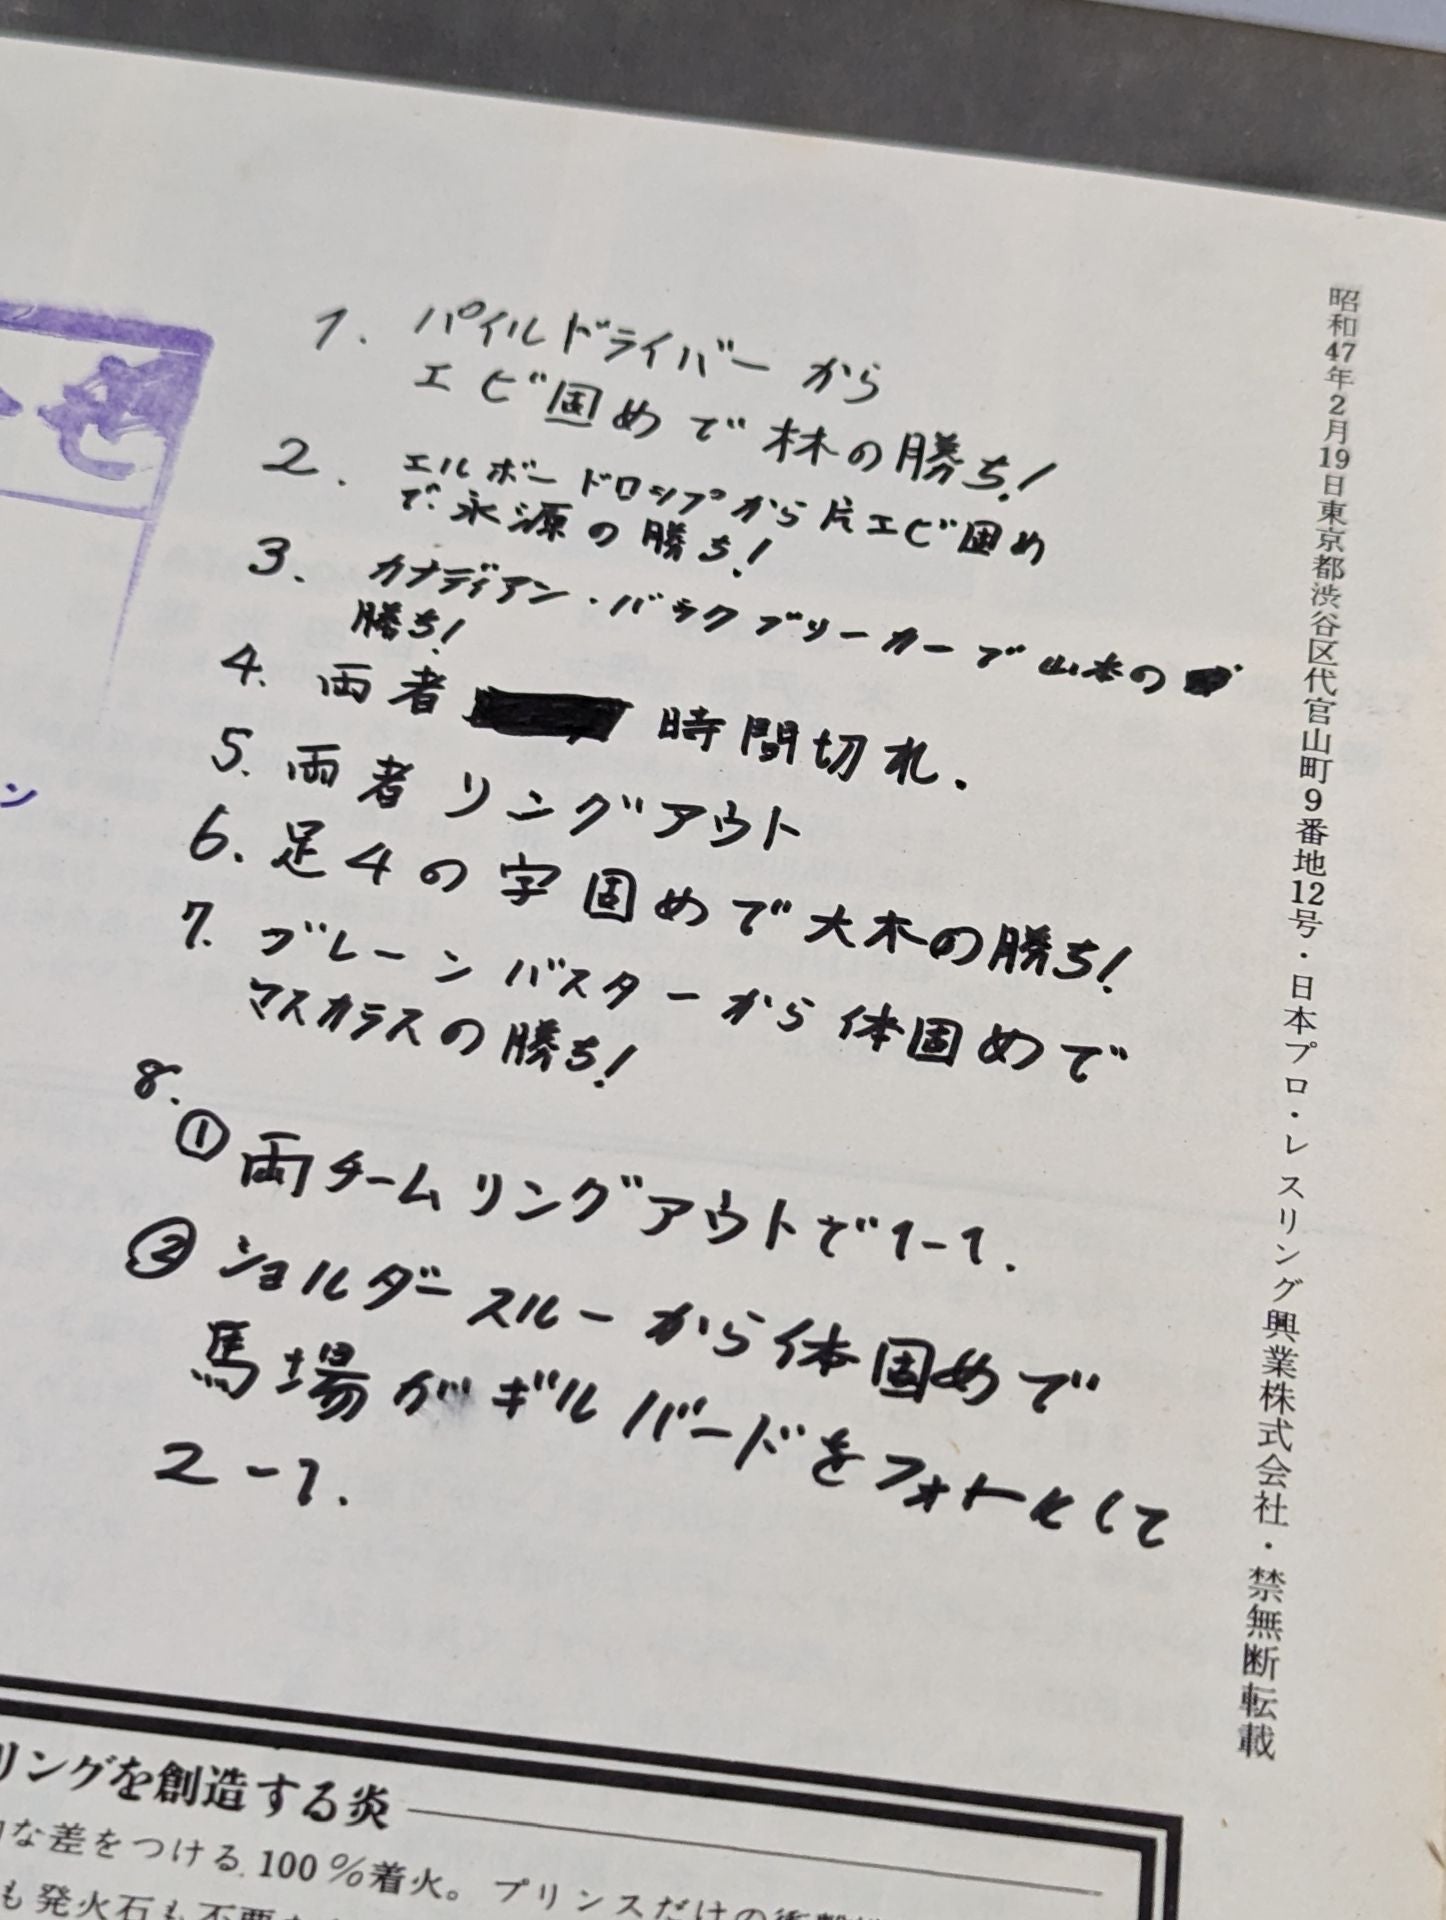 1. パイルドライバーから
エビ固めで林の勝ち!
2. エルボードロップから片エビ固め
で永源の勝ち!
3. カナディアン・バックブリーカーで山本の
勝ち!
4. 両者 時間切れ.
5. 両者リングアウト
6. 足4の字固めで大木の勝ち!
7. ブレーンバスターから体固めで
マスカラスの勝ち!
8.
① 両チームリングアウトで1-1.
② ショルダースルーから体固めで
馬場がギルバードをフォールして
2-1.
昭和47年2月19日東京都渋谷区代官山町9番地12号・日本プロ・レスリング興業株式会社・禁無断転載
ン
リングを創造する炎
な差をつける 100%着火。プリンスだけの
も発火石も不要